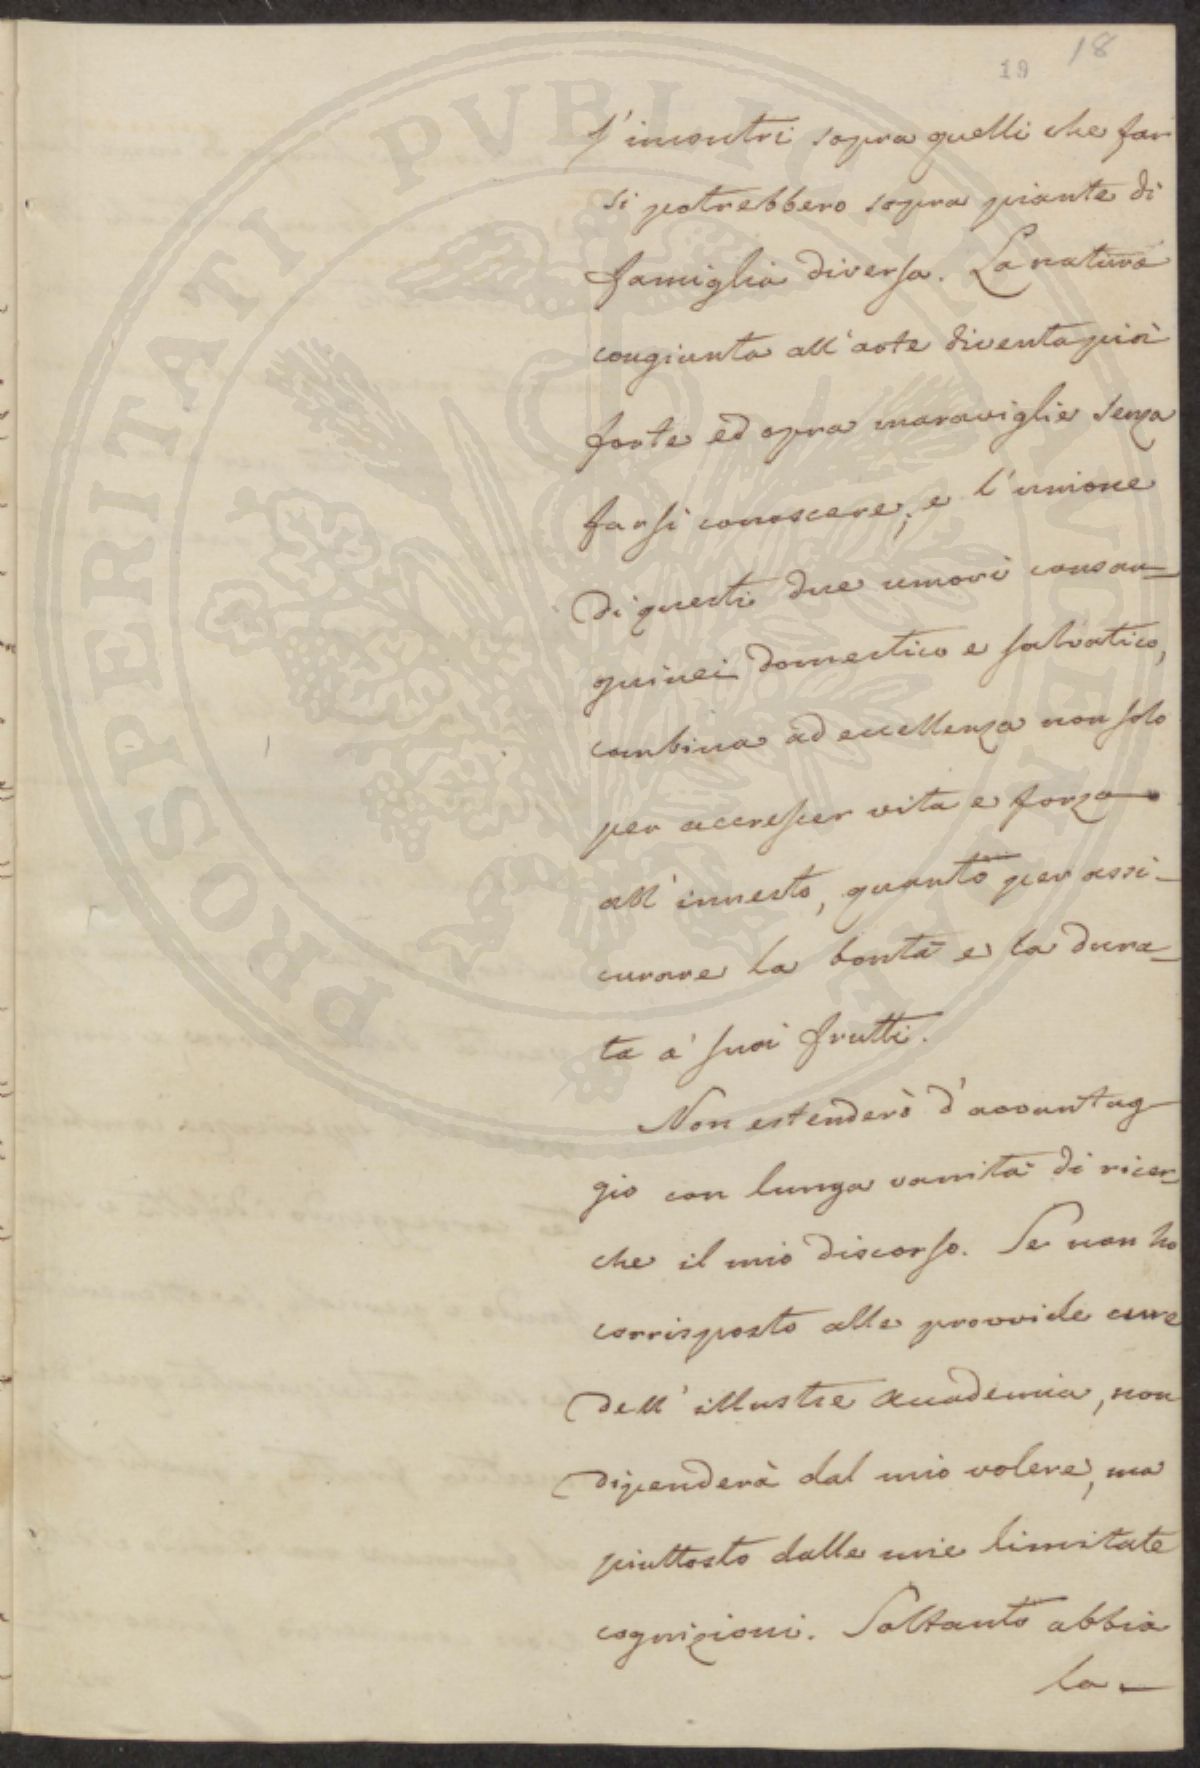 18
19
s'incontri sopra quelli che far
si potrebbero sopra piante di
famiglia diversa. La natura
congiunta all'arte diventa più
forte ed opra maraviglie senza
farsi conoscere; e l'unione
di questi due umori consan=
guinei domestico e salvatico,
combina ad eccellenza non solo
per accrescer vita e forza
all'innesto, quanto per assi=
curare la bontà e la dura=
ta a' suoi frutti.
Non estenderò d'avvantag
gio con lunga vanità di ricer=
che il mio discorso. Se non ho
corrisposto alle provvide cure
dell'illustre Accademia, non
dipenderà dal mio volere, ma
piuttosto dalle mie limitate
cognizioni. Soltanto abbia
la
PROSPERITATI PVBLICAE AVGENDAE